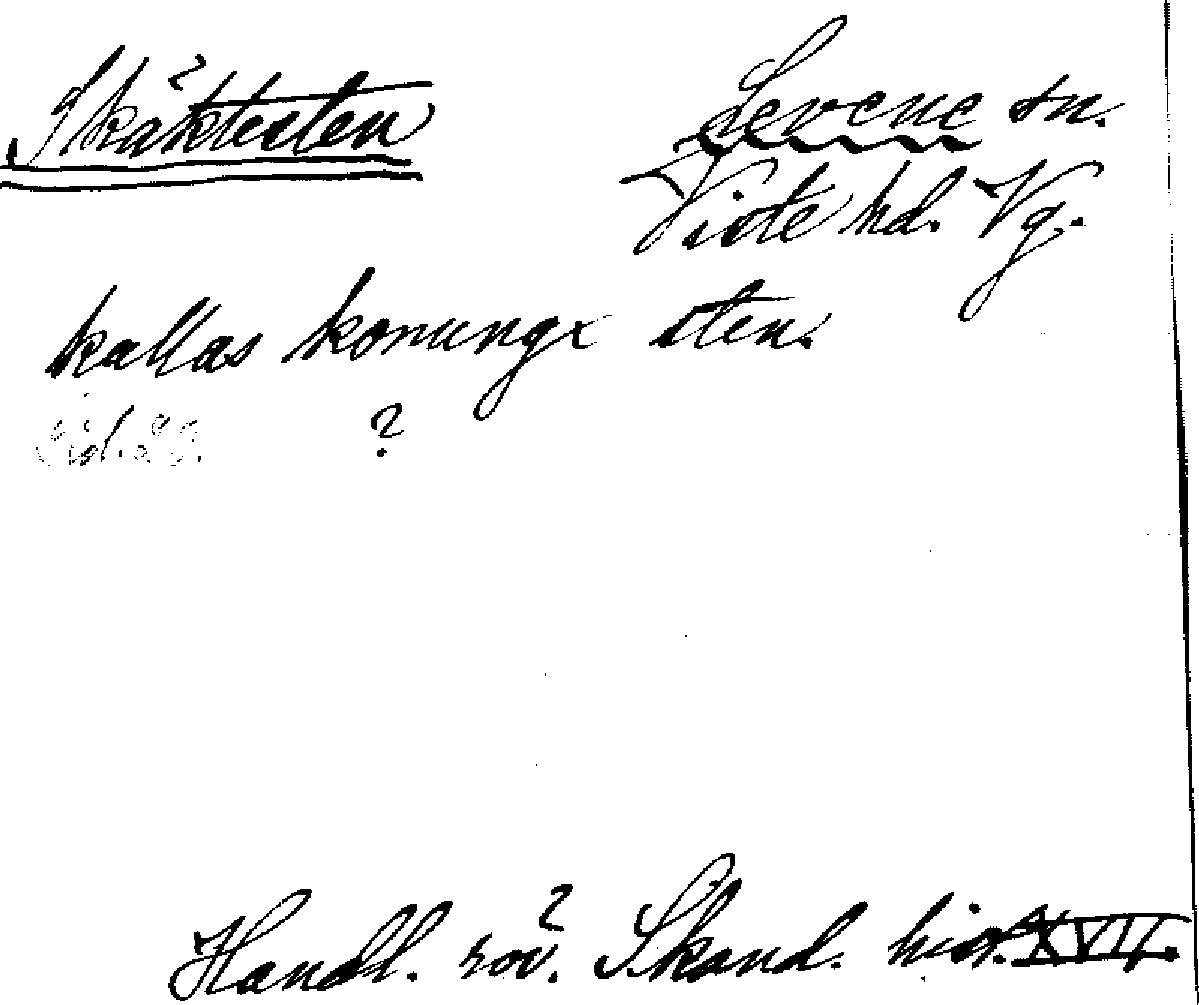 Skäktesten Levene sn.
Viste hd. Vg.
kallas konungx sten.
Sid. 20. ?
Handl. rör. Skand. hist. XVII.